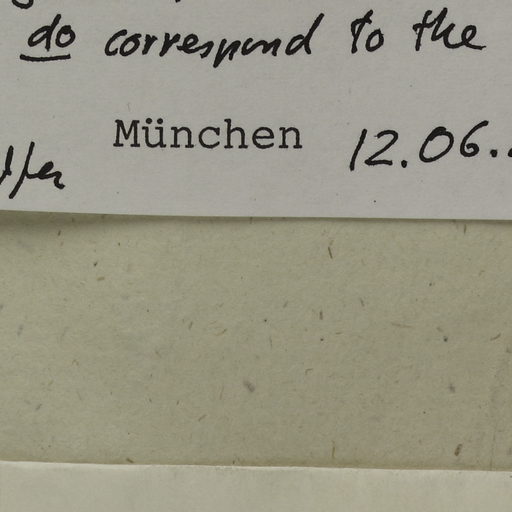 do correspond to the
München 12.06.